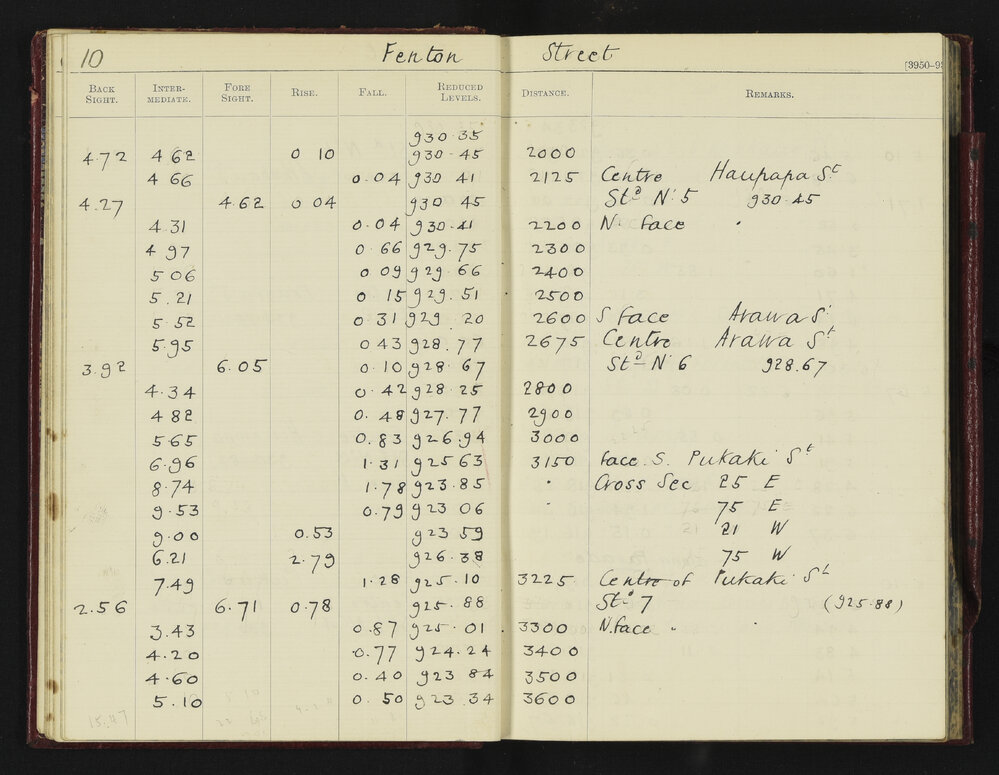 10 Fenton Street
[3950-9
BACK SIGHT. INTER-MEDIATE. FORE SIGHT. RISE. FALL. REDUCED LEVELS. DISTANCE. REMARKS.
930·35
4.72 4 62 0 10 930·45 2000
4 66 0·04 930 41 2125 Centre Haupapa St
4.27 4.62 0 04 930 45 Std No 5 930·45
4.31 0·04 930·41 2200 N. face "
4 97 0·66 929.75 2300
5 06 0 09 929.66 2400
5.21 0 15 929.51 2500
5 52 0.31 929 20 2600 S face Arawa St
5.95 0 43 928.77 2675 Centre Arawa St
3.92 6.05 0.10 928·67 Std No 6 928.67
4.34 0·42 928·25 2800
4 82 0.48 927.77 2900
5.65 0.83 926.94 3000
6.96 1.31 925 63 3150 face. S. Pukaki St
8.74 1.78 923.85 " Cross Sec 25 E
9.53 0.79 923 06 " 75 E
9.00 0.53 923 59 21 W
6.21 2.79 926.38 75 W
7.49 1·28 925·10 3225 Centre of Pukaki St
2.56 6.71 0.78 925.88 Std 7 (925.88)
3.43 0.87 925·01 3300 N.face "
4.20 0.77 924.24 3400
4.60 0.40 923 84 3500
5.10 0.50 923.34 3600